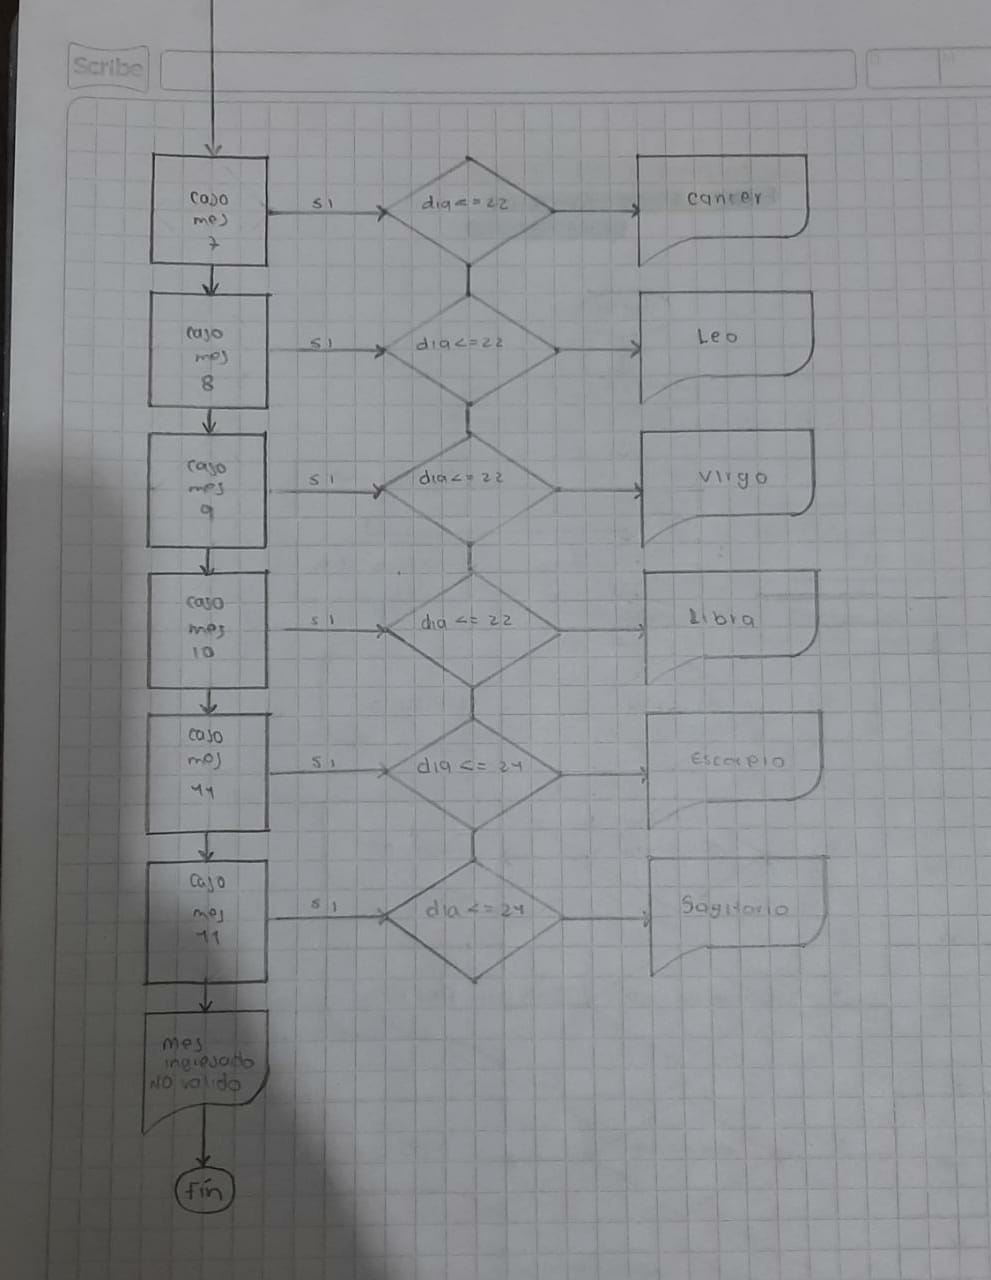 Scribe
caso
mes
7
si
dia<=22
cancer
caso
mes
8
si
dia<=22
Leo
caso
mes
9
si
dia<=22
Virgo
caso
mes
10
si
dia <= 22
Libra
caso
mes
11
si
dia <= 24
Escorpio
caso
mes
11
si
dia <= 24
Sagitario
mes
ingresado
NO valido
fin